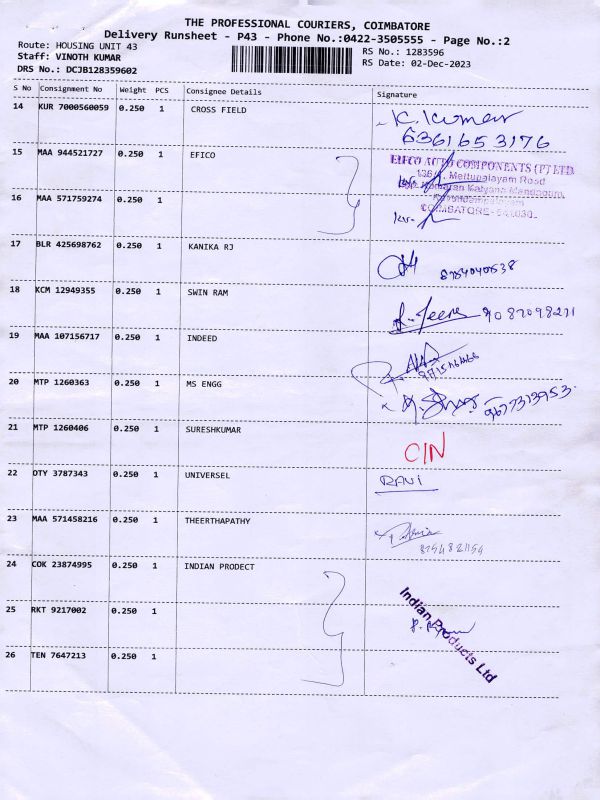 THE PROFESSIONAL COURIERS, COIMBATORE
Delivery Runsheet - P43 - Phone No.:0422-3505555 - Page No.:2
Route: HOUSING UNIT 43
Staff: VINOTH KUMAR
DRS No.: DCJB128359602
RS No.: 1283596
RS Date: 02-Dec-2023
S No Consignment No Weight PCS Consignee Details Signature
14 KUR 7000560059 0.250 1 CROSS FIELD K. Kumar
6361653176
15 MAA 944521727 0.250 1 EFICO
EFICO AUTO COMPONENTS (P) LTD
136/1, Mettupalayam Road
Kalyana Mandapam,
COIMBATORE-641030.
16 MAA 571759274 0.250 1
17 BLR 425698762 0.250 1 KANIKA RJ
18 KCM 12949355 0.250 1 SWIN RAM
19 MAA 107156717 0.250 1 INDEED
20 MTP 1260363 0.250 1 MS ENGG
9677313953
21 MTP 1260406 0.250 1 SURESHKUMAR CIN
22 OTY 3787343 0.250 1 UNIVERSEL RAVI
23 MAA 571458216 0.250 1 THEERTHAPATHY
24 COK 23874995 0.250 1 INDIAN PRODECT
25 RKT 9217002 0.250 1
Indian Products Ltd
26 TEN 7647213 0.250 1